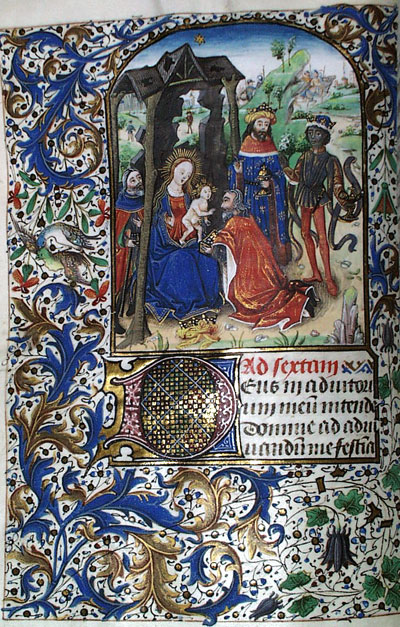 Ad sextam
Deus in adiutori
um meū intende
Domine ad adiu
uandū me festia